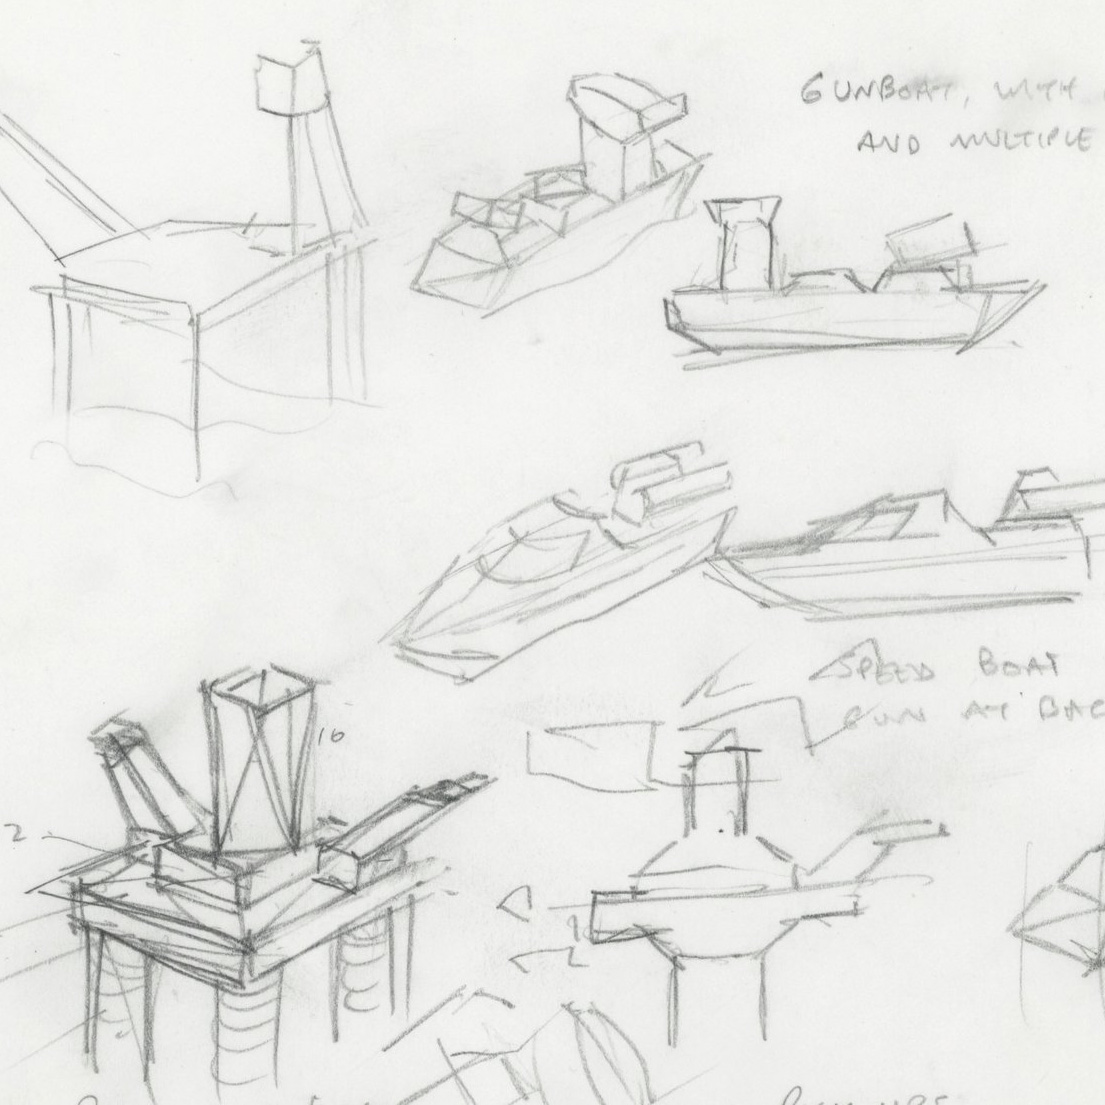 GUNBOAT, WITH
AND MULTIPLE
SPEED BOAT
GUN AT BAC
16
2